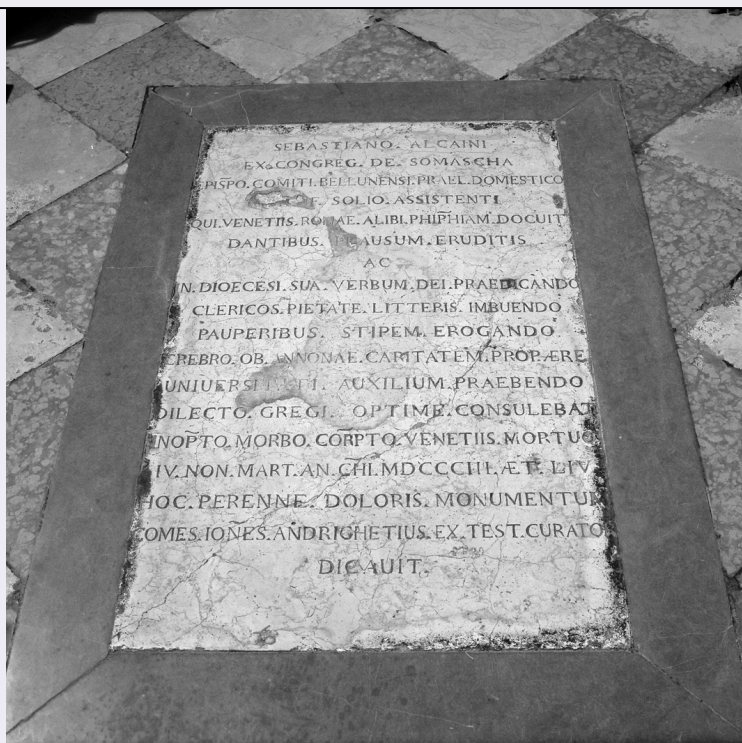 SEBASTIANO. ALCAINI
EX. CONGREG. DE. SOMASCHA
EPIS̅PO. COMITI. BELLUNENSI. PRAEL. DOMESTICO
E. SOLIO. ASSISTENTI
QUI. VENETIIS. ROMAE. ALIBI. PHIP̅HIAM. DOCUIT
DANTIBUS. PLAUSUM. ERUDITIS
AC
IN. DIOECESI. SUA. VERBUM. DEI. PRAEDICANDO
CLERICOS. PIETATE. LITTERIS. IMBUENDO
PAUPERIBUS. STIPEM. EROGANDO
CREBRO. OB. ANNONAE. CARITATEM. PROPÆRE
UNIUERSITATI. AUXILIUM. PRAEBENDO
DILECTO. GREGI. OPTIME. CONSULEBAT
INOP̅TO. MORBO. COR̅PTO. VENETIIS. MORTUO
IV. NON. MART. AN. CH̅I. MDCCCIII. ÆT. LIV
HOC. PERENNE. DOLORIS. MONUMENTUM
COMES. IOÑES. ANDRIGHETIUS. EX. TEST. CURATO
DICAUIT.